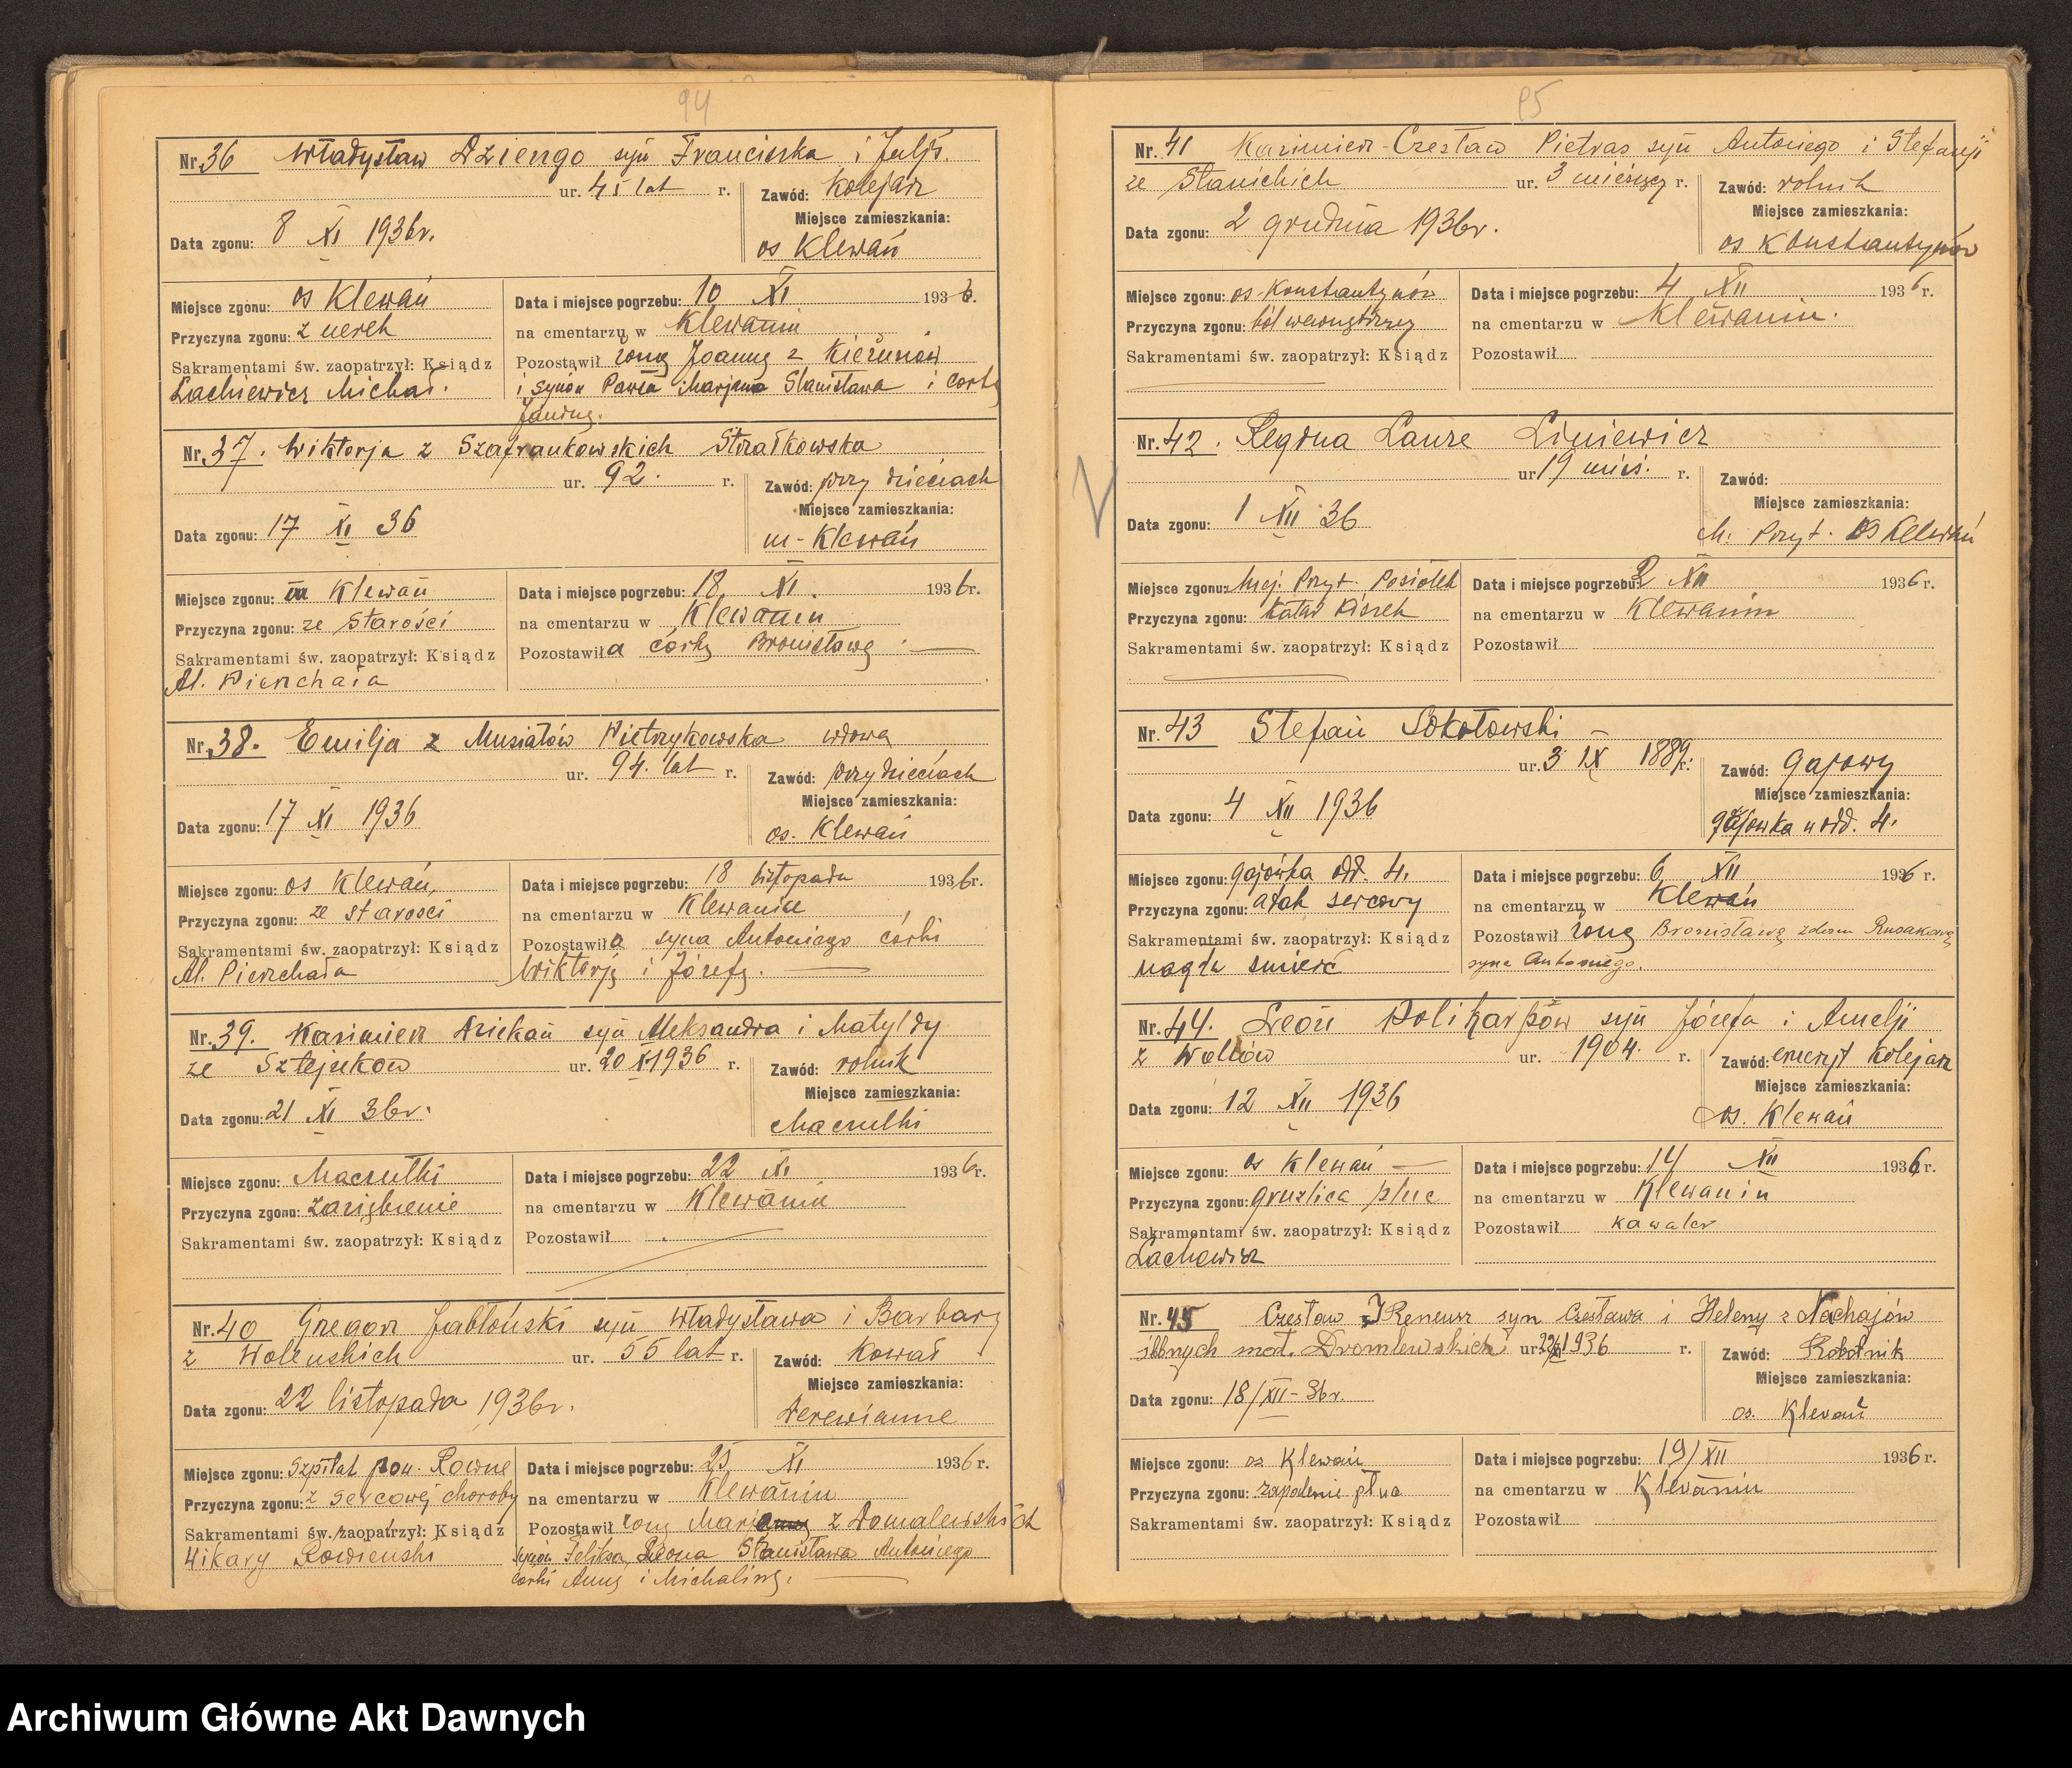 94
Nr. 36 Władysław Dziengo syn Franciszka i Julji.
ur. 45 lat r. Zawód: Kolejarz
Miejsce zamieszkania:
Data zgonu: 8 XI 1936r. os Klewań
Miejsce zgonu: os Klewań Data i miejsce pogrzebu: 10 XI 1936.
Przyczyna zgonu: z nerek na cmentarzu w Klewaniu
Sakramentami św. zaopatrzył: Ksiądz Pozostawił żonę Joannę z
Lachiewicz Michał. i synów Pawła Marjana Stanisława i córkę
Janinę.
Nr. 37. Wiktorja z Szafrankowskich Strzałkowska
ur. 92. r. Zawód: przy dzieciach
Miejsce zamieszkania:
Data zgonu: 17 XI 36 m-Klewań
Miejsce zgonu: m Klewań Data i miejsce pogrzebu: 18 XI. 1936r.
Przyczyna zgonu: ze starości na cmentarzu w Klewaniu
Sakramentami św. zaopatrzył: Ksiądz Pozostawiła córkę Bronisławę
Al. Pierzchała
Nr. 38. Emilja z Musiałów Pietrzykowska wdowa
ur. 94. lat r. Zawód: przy dzieciach
Miejsce zamieszkania:
Data zgonu: 17 XI 1936 os. Klewań
Miejsce zgonu: os Klewań, Data i miejsce pogrzebu: 18 listopada 1936r.
Przyczyna zgonu: ze starości na cmentarzu w Klewaniu
Sakramentami św. zaopatrzył: Ksiądz Pozostawiła syna Antoniego córki
Al. Pierzchała Wiktorję i Józefę.
Nr. 39. Kazimierz Dziekan syn Aleksandra i Matyldy
ze ur. 20 XI 1936 r. Zawód: rolnik
Miejsce zamieszkania:
Data zgonu: 21 XI 36r. Maczulki
Miejsce zgonu: Maczulki Data i miejsce pogrzebu: 22 XI 1936r.
Przyczyna zgonu: zaziębienie na cmentarzu w Klewaniu
Sakramentami św. zaopatrzył: Ksiądz Pozostawił
Nr. 40 Grzegorz Jabłoński syn Władysława i Barbary
z Woleńskich ur. 55 lat r. Zawód: Kowal
Miejsce zamieszkania:
Data zgonu: 22 listopada 1936r. Derewianne
Miejsce zgonu: szpital pow. Rowne Data i miejsce pogrzebu: 25 XI 1936r.
Przyczyna zgonu: z sercowej choroby na cmentarzu w Klewaniu
Sakramentami św. zaopatrzył: Ksiądz Pozostawił żonę z Domalewskich
Wikary Rowieński synów Feliksa, Leona Stanisława Antoniego
córki Annę i Michalinę.
95
Nr. 41 Kazimierz-Czesław Pietras syn Antoniego i Stefanji
ze ur. 3 miesięcy r. Zawód: rolnik
Miejsce zamieszkania:
Data zgonu: 2 grudnia 1936r. os Konstantynów
Miejsce zgonu: os-Konstantynów Data i miejsce pogrzebu: 4 XII 1936r.
Przyczyna zgonu: ból wewnętrzny na cmentarzu w Klewaniu.
Sakramentami św. zaopatrzył: Ksiądz Pozostawił
Nr. 42. Regina Laura Liniewicz
ur 19 mieś. r. Zawód:
Miejsce zamieszkania:
Data zgonu: 1 XII 36 M. Przyt. os Klewań
Miejsce zgonu: Miej. Przyt. Posiółek Data i miejsce pogrzebu: 2 XII 1936r.
Przyczyna zgonu: Katar kiszek na cmentarzu w Klewaniu
Sakramentami św. zaopatrzył: Ksiądz Pozostawił
Nr. 43 Stefan Sokołowski -
ur. 3 IX 1889r. Zawód: gajowy
Miejsce zamieszkania:
Data zgonu: 4 XII 1936 gajowka odd. 4.
Miejsce zgonu: gajówka odd. 4. Data i miejsce pogrzebu: 6 XII 1936 r.
Przyczyna zgonu: atak sercowy na cmentarzu w Klewań
Sakramentami św. zaopatrzył: Ksiądz Pozostawił żonę Bronisławę z domu
nagła smierć syna Antoniego.
Nr. 44. Leon Polikarpów syn Józefa i Amelji
z ur. 1904. r. Zawód: emeryt kolejarz
Miejsce zamieszkania:
Data zgonu: 12 XII 1936 os. Klewań
Miejsce zgonu: os Klewań Data i miejsce pogrzebu: 14 XII 1936r.
Przyczyna zgonu: gruzlica płuc na cmentarzu w Klewaniu
Sakramentami św. zaopatrzył: Ksiądz Pozostawił kawaler
Lachowicz
Nr. 45 Czesław Ireneusz syn Czesława i Heleny z Nachajów
ślbnych mał. ur. 1936 r. Zawód: Robotnik
Miejsce zamieszkania:
Data zgonu: 18/XII-36r. os. Klewań
Miejsce zgonu: os Klewań Data i miejsce pogrzebu: 19/XII 1936r.
Przyczyna zgonu: zapalenie płuc na cmentarzu w Klewaniu
Sakramentami św. zaopatrzył: Ksiądz Pozostawił
Archiwum Główne Akt Dawnych